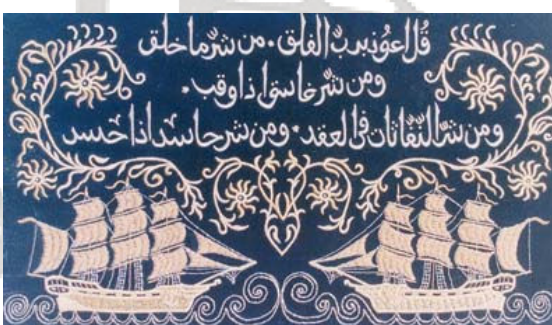 قُل اعوُذ برب الفلق . من شر ما خلق
ومن شر غاسق اذا وقب .
ومن شر النفاثات فى العقد . ومن شر حاسد اذا حسد